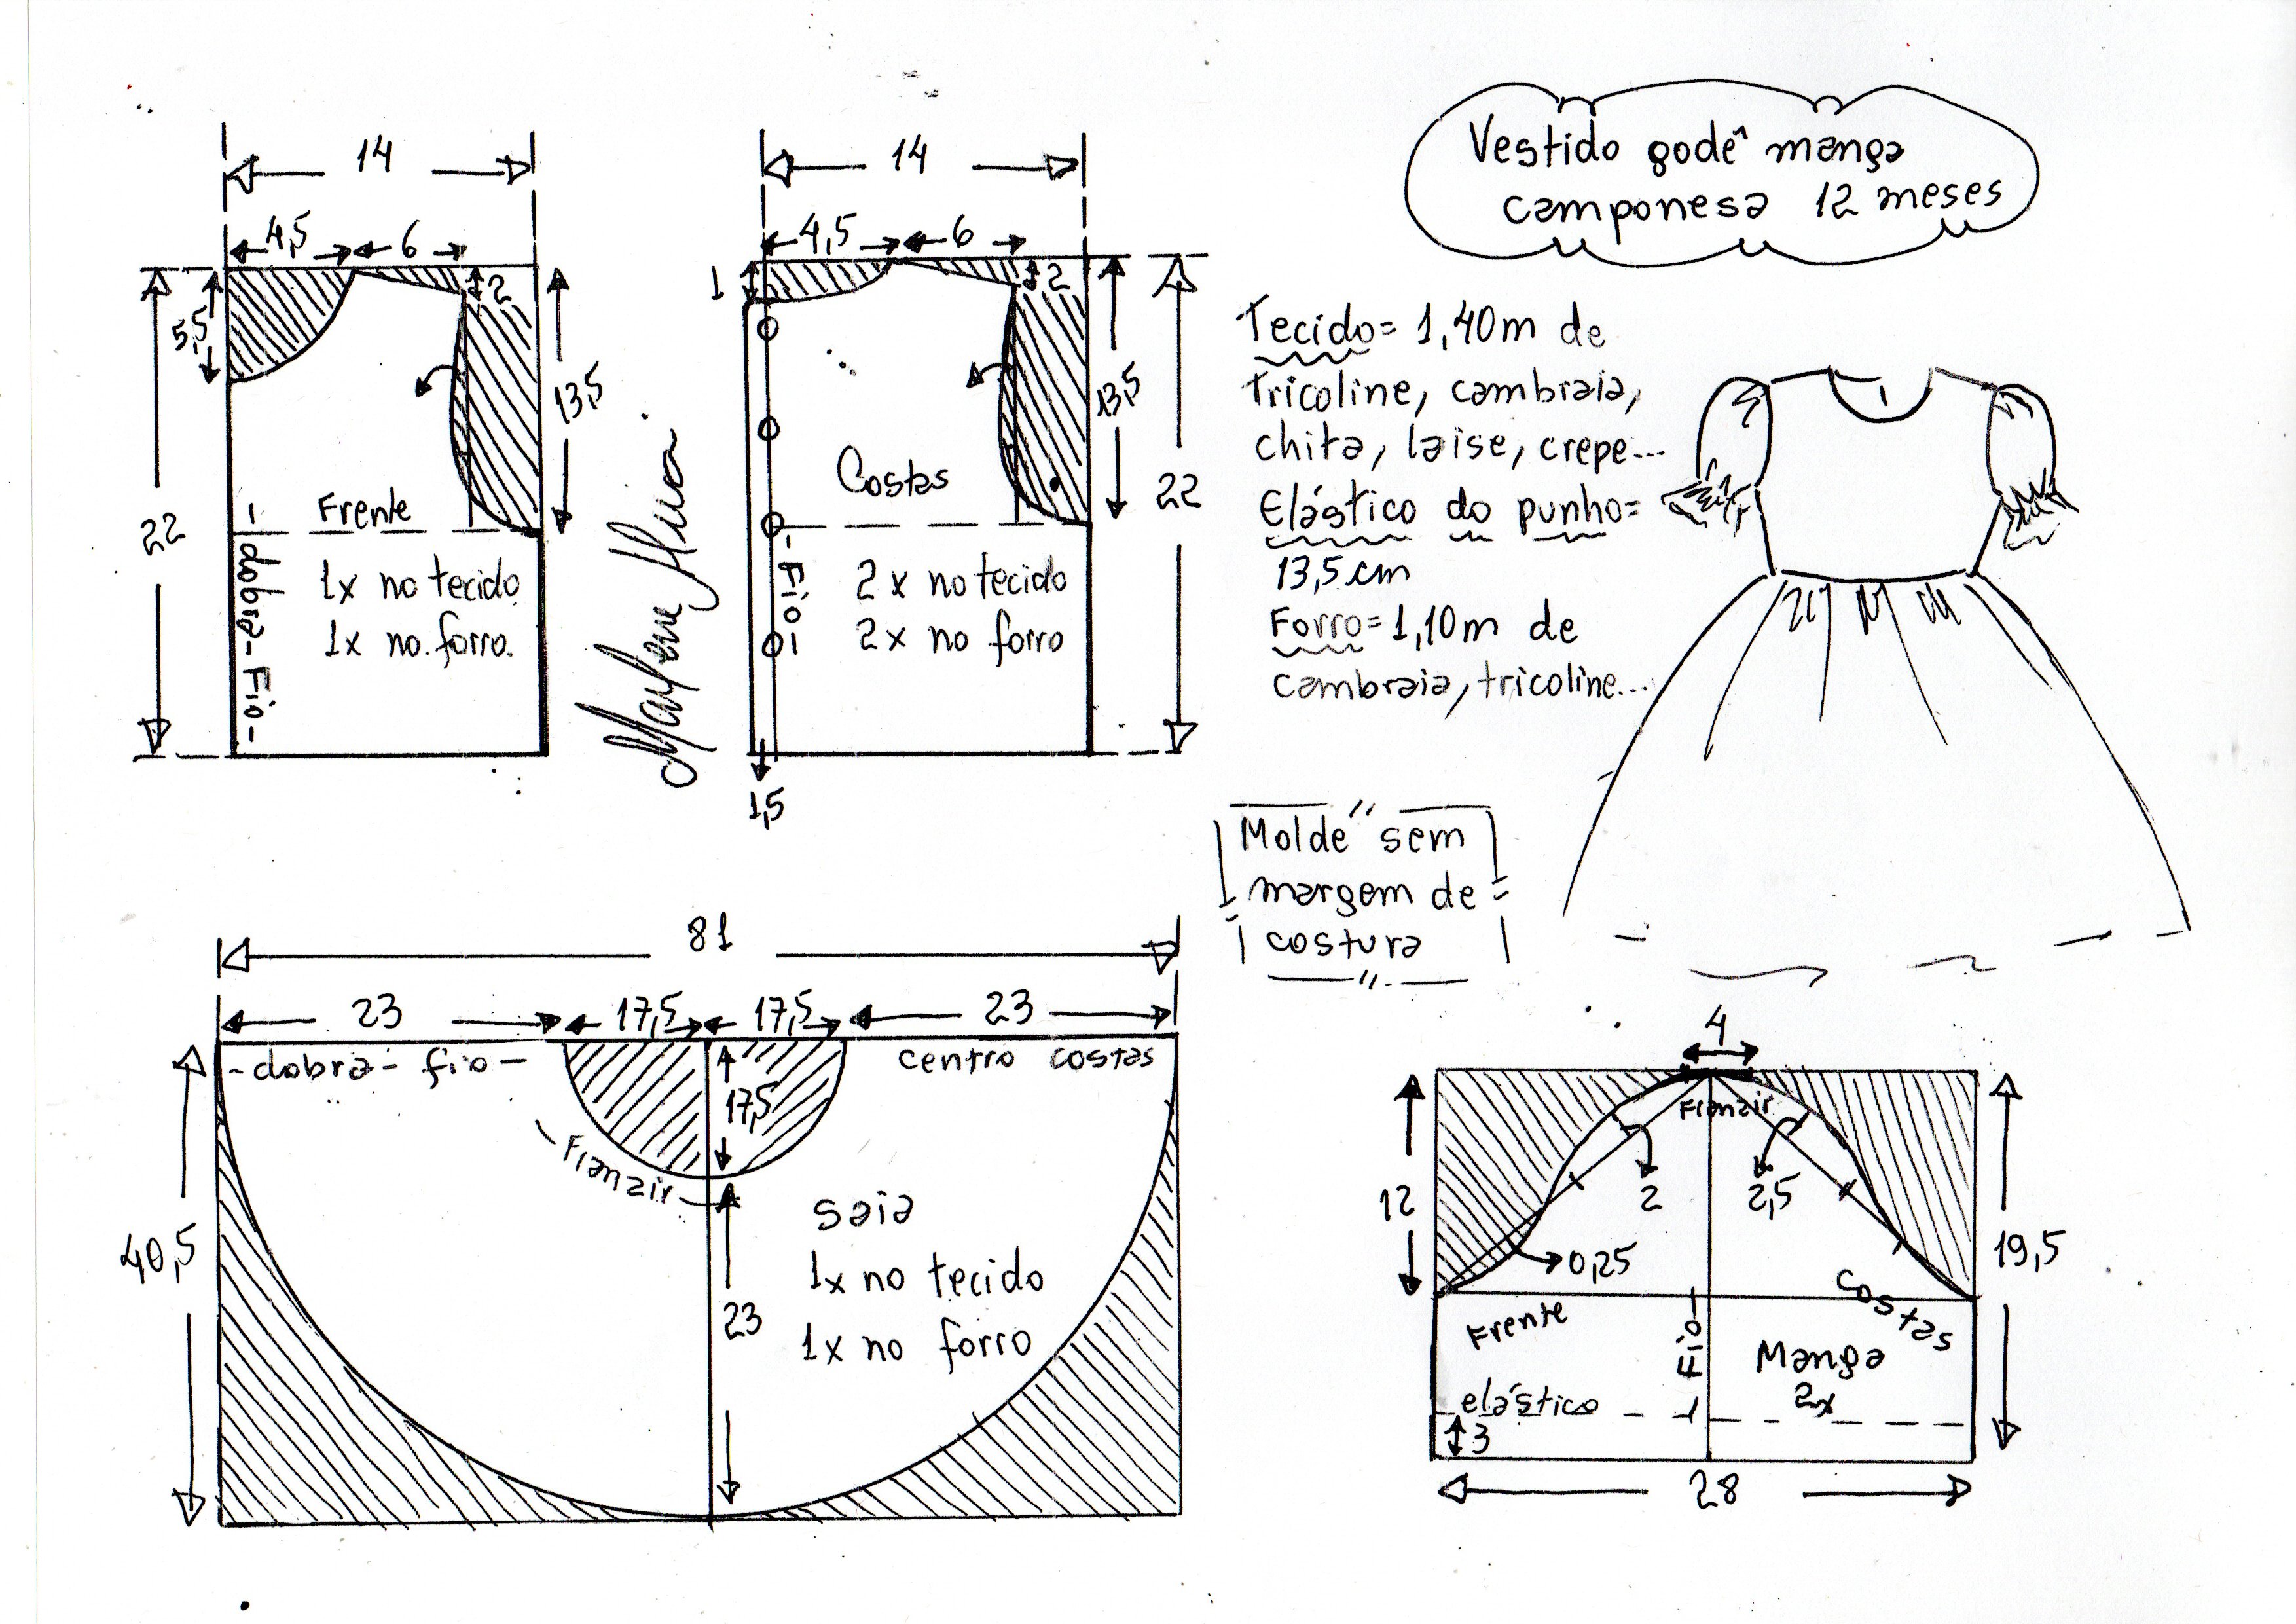 Vestido godê manga
camponesa 12 meses
14
4,5
6
5,5
2
13,5
22
Frente
1x no tecido
1x no forro.
-dobra-Fio-
14
4,5
6
1
2
13,5
22
Costas
2x no tecido
2x no forro
-Fio-
1,5
Tecido= 1,40m de
tricoline, cambraia,
chita, laise, crepe...
Elástico do punho=
13,5cm
Forro=1,10m de
cambraia, tricoline...
"Molde sem
margem de
costura"
81
23
17,5
17,5
23
-dobra- fio-
centro costas
17,5
Franzir
40,5
23
saia
1x no tecido
1x no forro
4
Franzir
12
2
2,5
0,25
19,5
Frente
Costas
-Fio-
Manga
2x
elástico
3
28